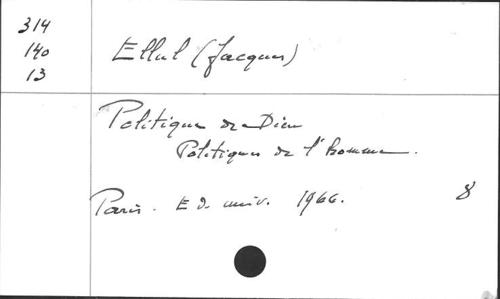 314
140
13
Ellul (Jacques)
Politique de Dieu
Politiques de l'homme.
Paris. Ed. univ. 1966.
8